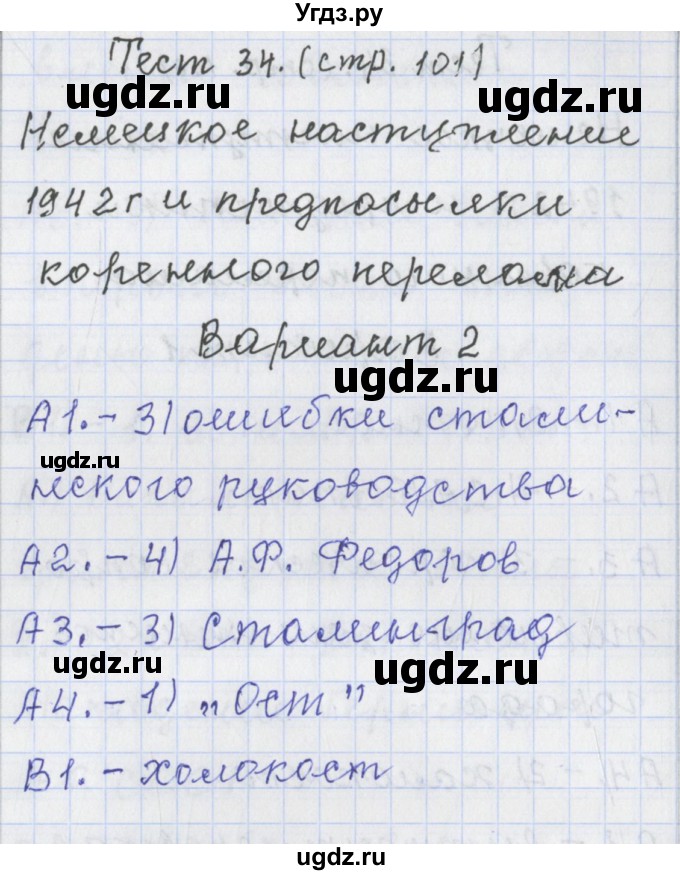 Угдз.ру
Тест 34. (стр. 101)
ugdz.ru
ugdz.ru
Немецкое наступление
1942 г и предпосылки
ugdz.ru
ugdz.ru
коренного перелома
Вариант 2
ugdz.ru
А1. - 3) ошибки стали-
ugdz.ru
нского руководства
ugdz.ru
А2. - 4) А.Ф. Федоров
ugdz.ru
А3. - 3) Сталинград
ugdz.ru
ugdz.ru
А4. - 1) „Ост”
ugdz.ru
В1. - холокост
ugdz.ru
ugdz.ru